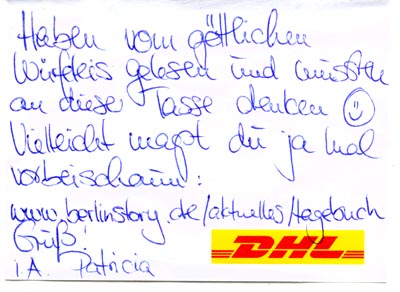 Haben vom göttlichen
Würfeleis gelesen und mussten
an diese Tasse denken ☺
Vielleicht magst du ja mal
vorbeischauen:
www.berlinstory.de/aktuelles/tagebuch
Gruß!
i.A. Patricia
DHL